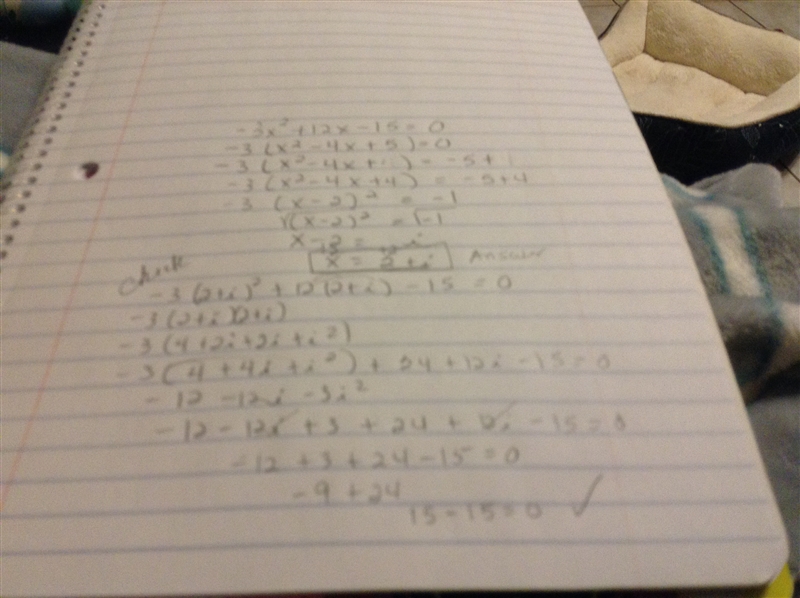 -3x² + 12x - 15 = 0
-3(x² - 4x + 5) = 0
-3(x² - 4x + ) = -5 +
-3(x² - 4x + 4) = -5 + 4
-3 (x - 2)² = -1
√(x-2)² = √-1
x - 2 = i
x = 2 + i Answer
Check
-3(2+i)² + 12(2+i) - 15 = 0
-3(2+i)(2+i)
-3(4+2i+2i+i²)
-3(4 + 4i + i²) + 24 + 12i - 15 = 0
- 12 - 12i - 3i²
-12 - 12i + 3 + 24 + 12i - 15 = 0
-12 + 3 + 24 - 15 = 0
-9 + 24
15 - 15 = 0 ✓